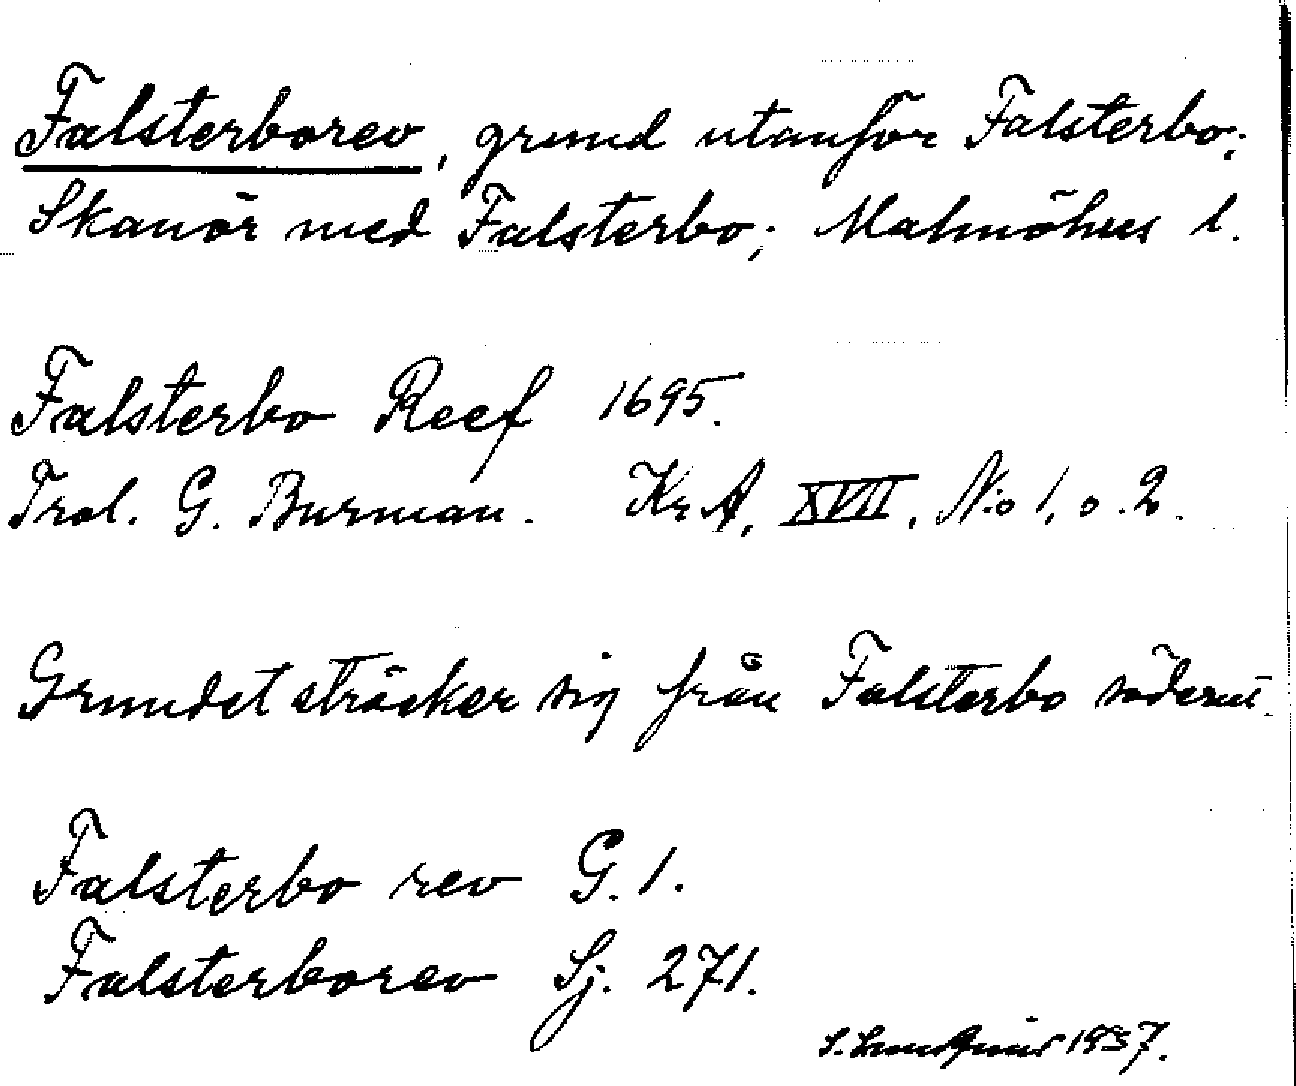 Falsterborev, grund utanför Falsterbo;
Skanör med Falsterbo; Malmöhus l.
Falsterbo Reef 1695.
Trol. G. Burman. Kr.A, XVII, N:o 1, o. 2.
Grundet sträcker sig från Falsterbo söderut.
Falsterbo rev G. 1.
Falsterborev Sj. 271.
S. 1937.